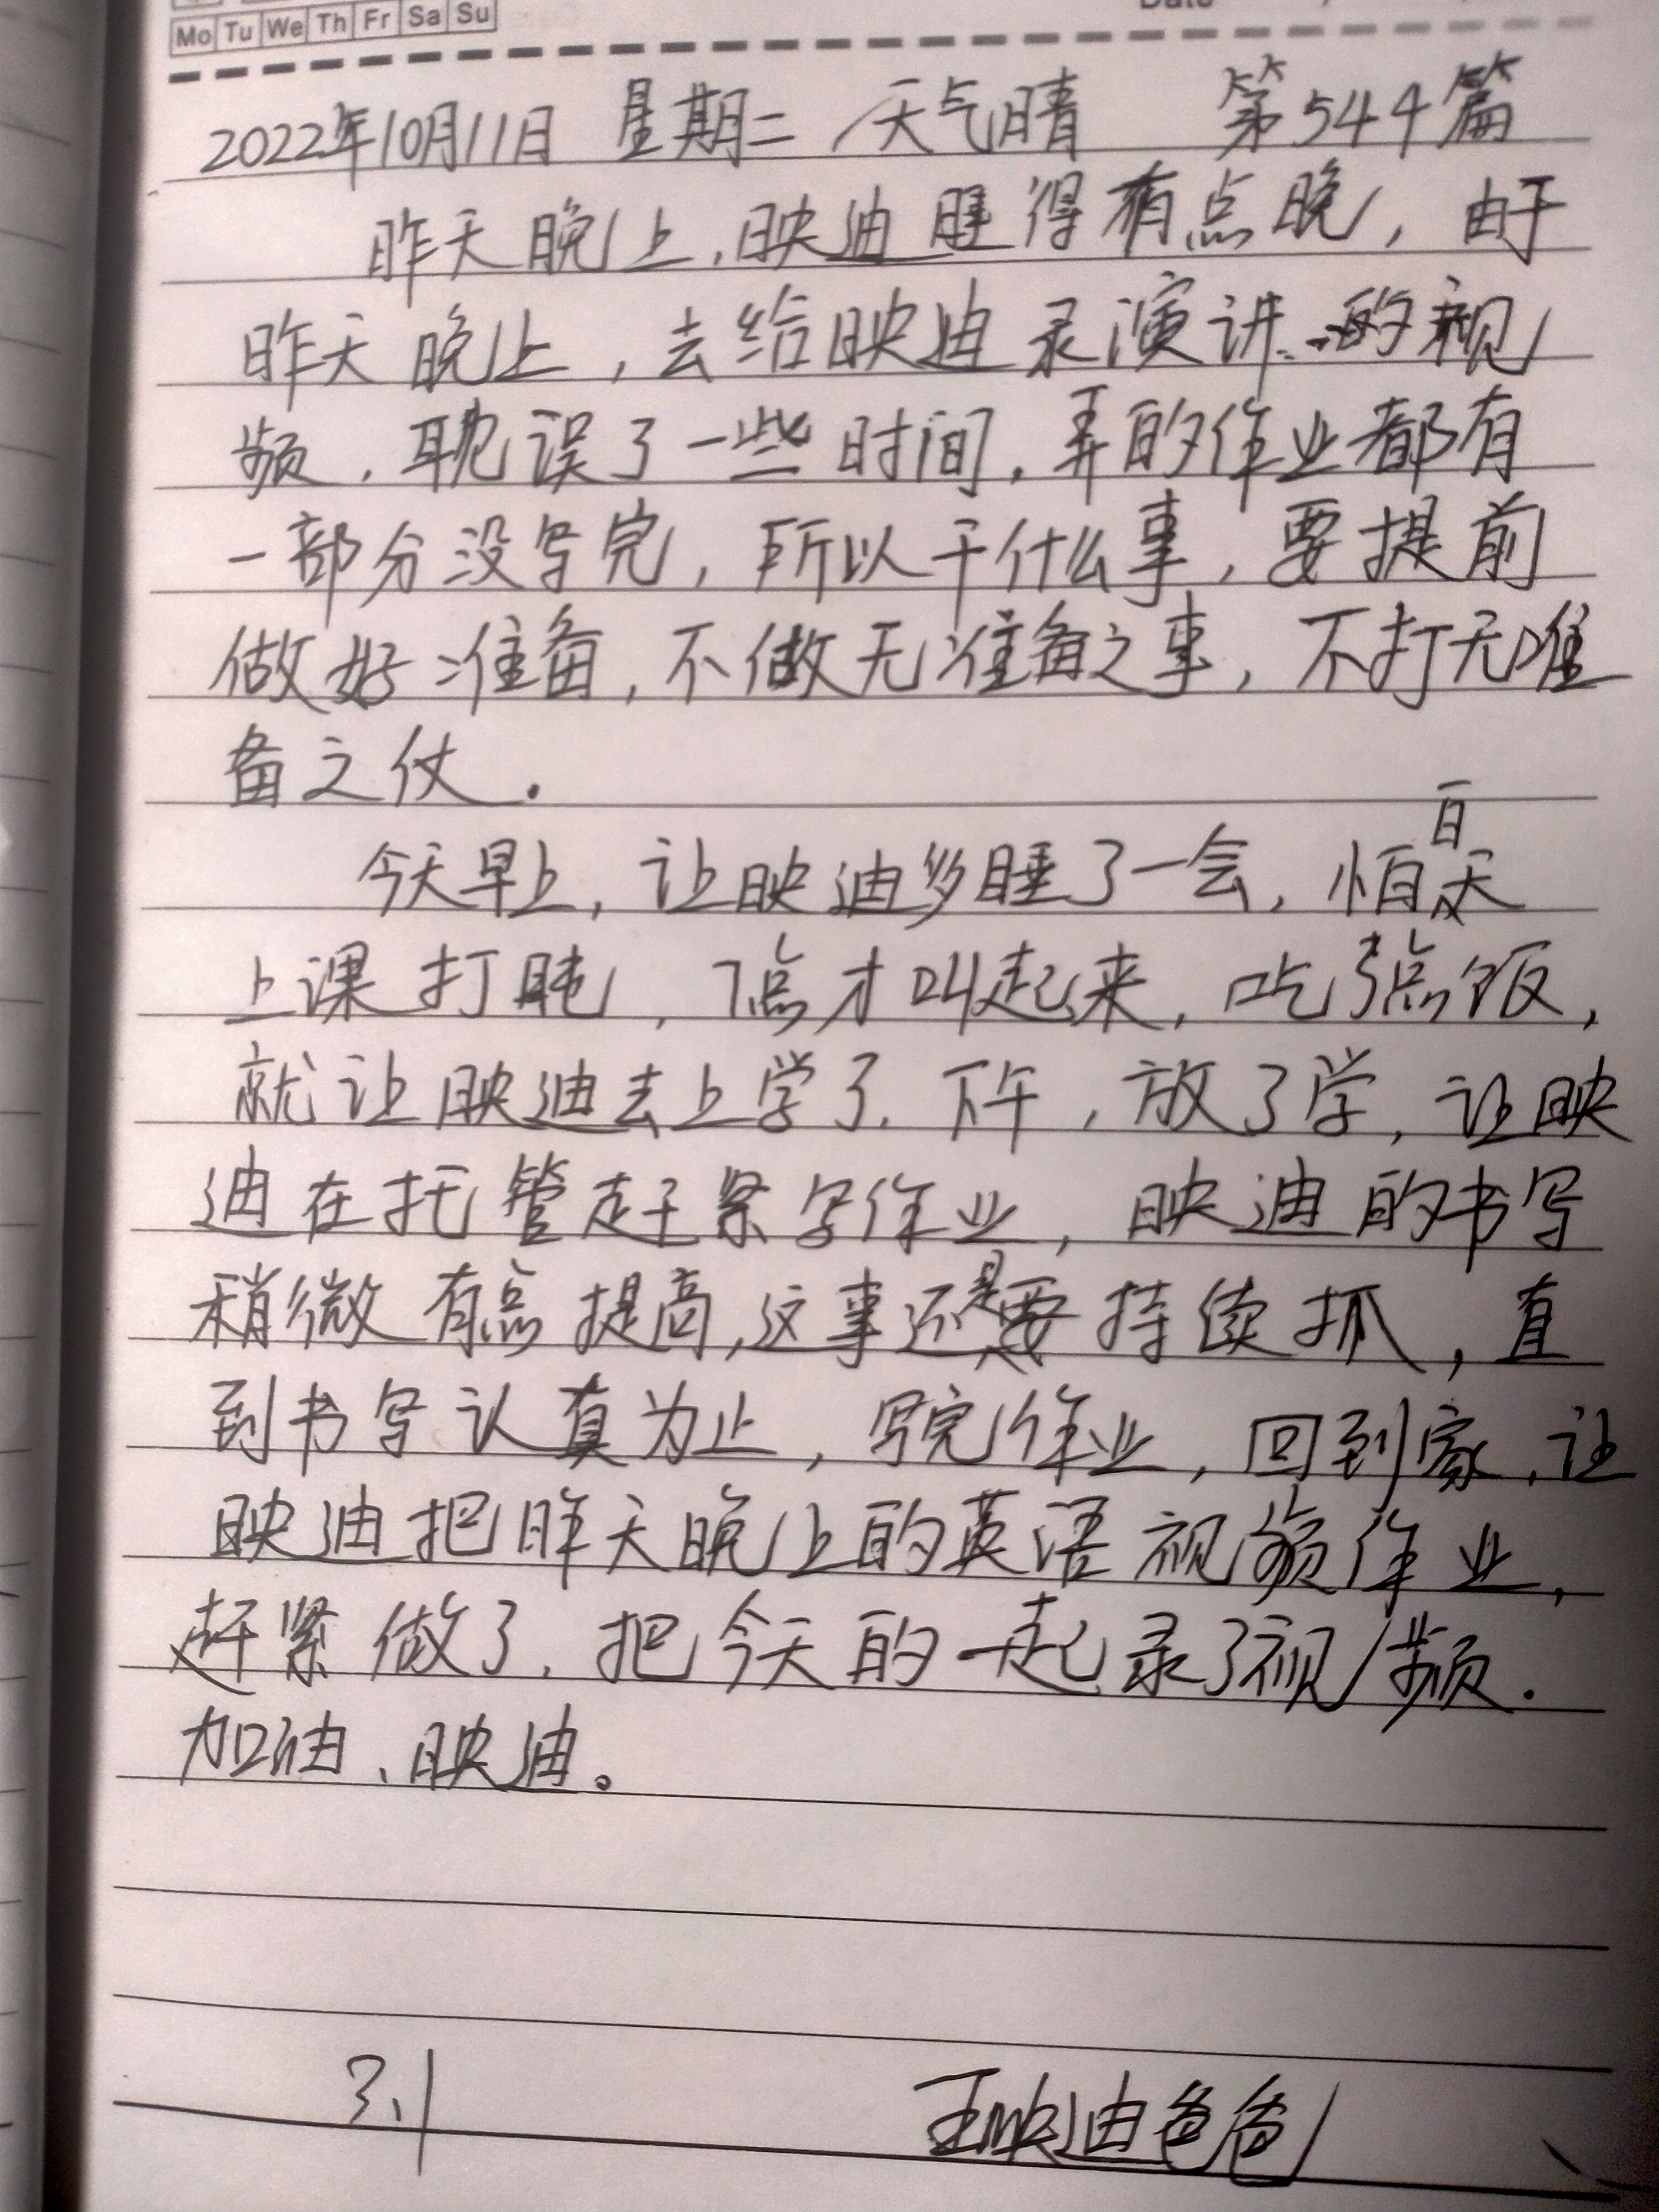 Mo Tu We Th Fr Sa Su
2022年10月11日 星期二 天气晴 第544篇
昨天晚上,映迪睡得有点晚,由于
昨天晚上,去给映迪录演讲的视
频.耽误了一些时间,弄的作业都有
一部分没写完,所以干什么事,要提前
做好准备,不做无准备之事,不打无准
备之仗.
今天早上,让映迪多睡了一会,怕白天
上课打盹,7点才叫起来,吃了点饭,
就让映迪去上学了.下午,放了学,让映
迪在托管赶紧写作业,映迪的书写
稍微有点提高,这事还是要持续抓,直
到书写认真为止,写完作业,回到家,让
映迪把昨天晚上的英语视频作业,
赶紧做了.把今天的一起录了视频.
加油、映迪。
3.1 王映迪爸爸